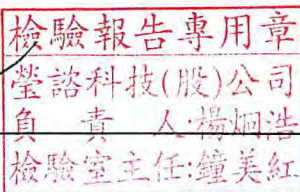 檢驗報告專用章
瑩諮科技(股)公司
負責人:楊炯浩
檢驗室主任:鐘美紅